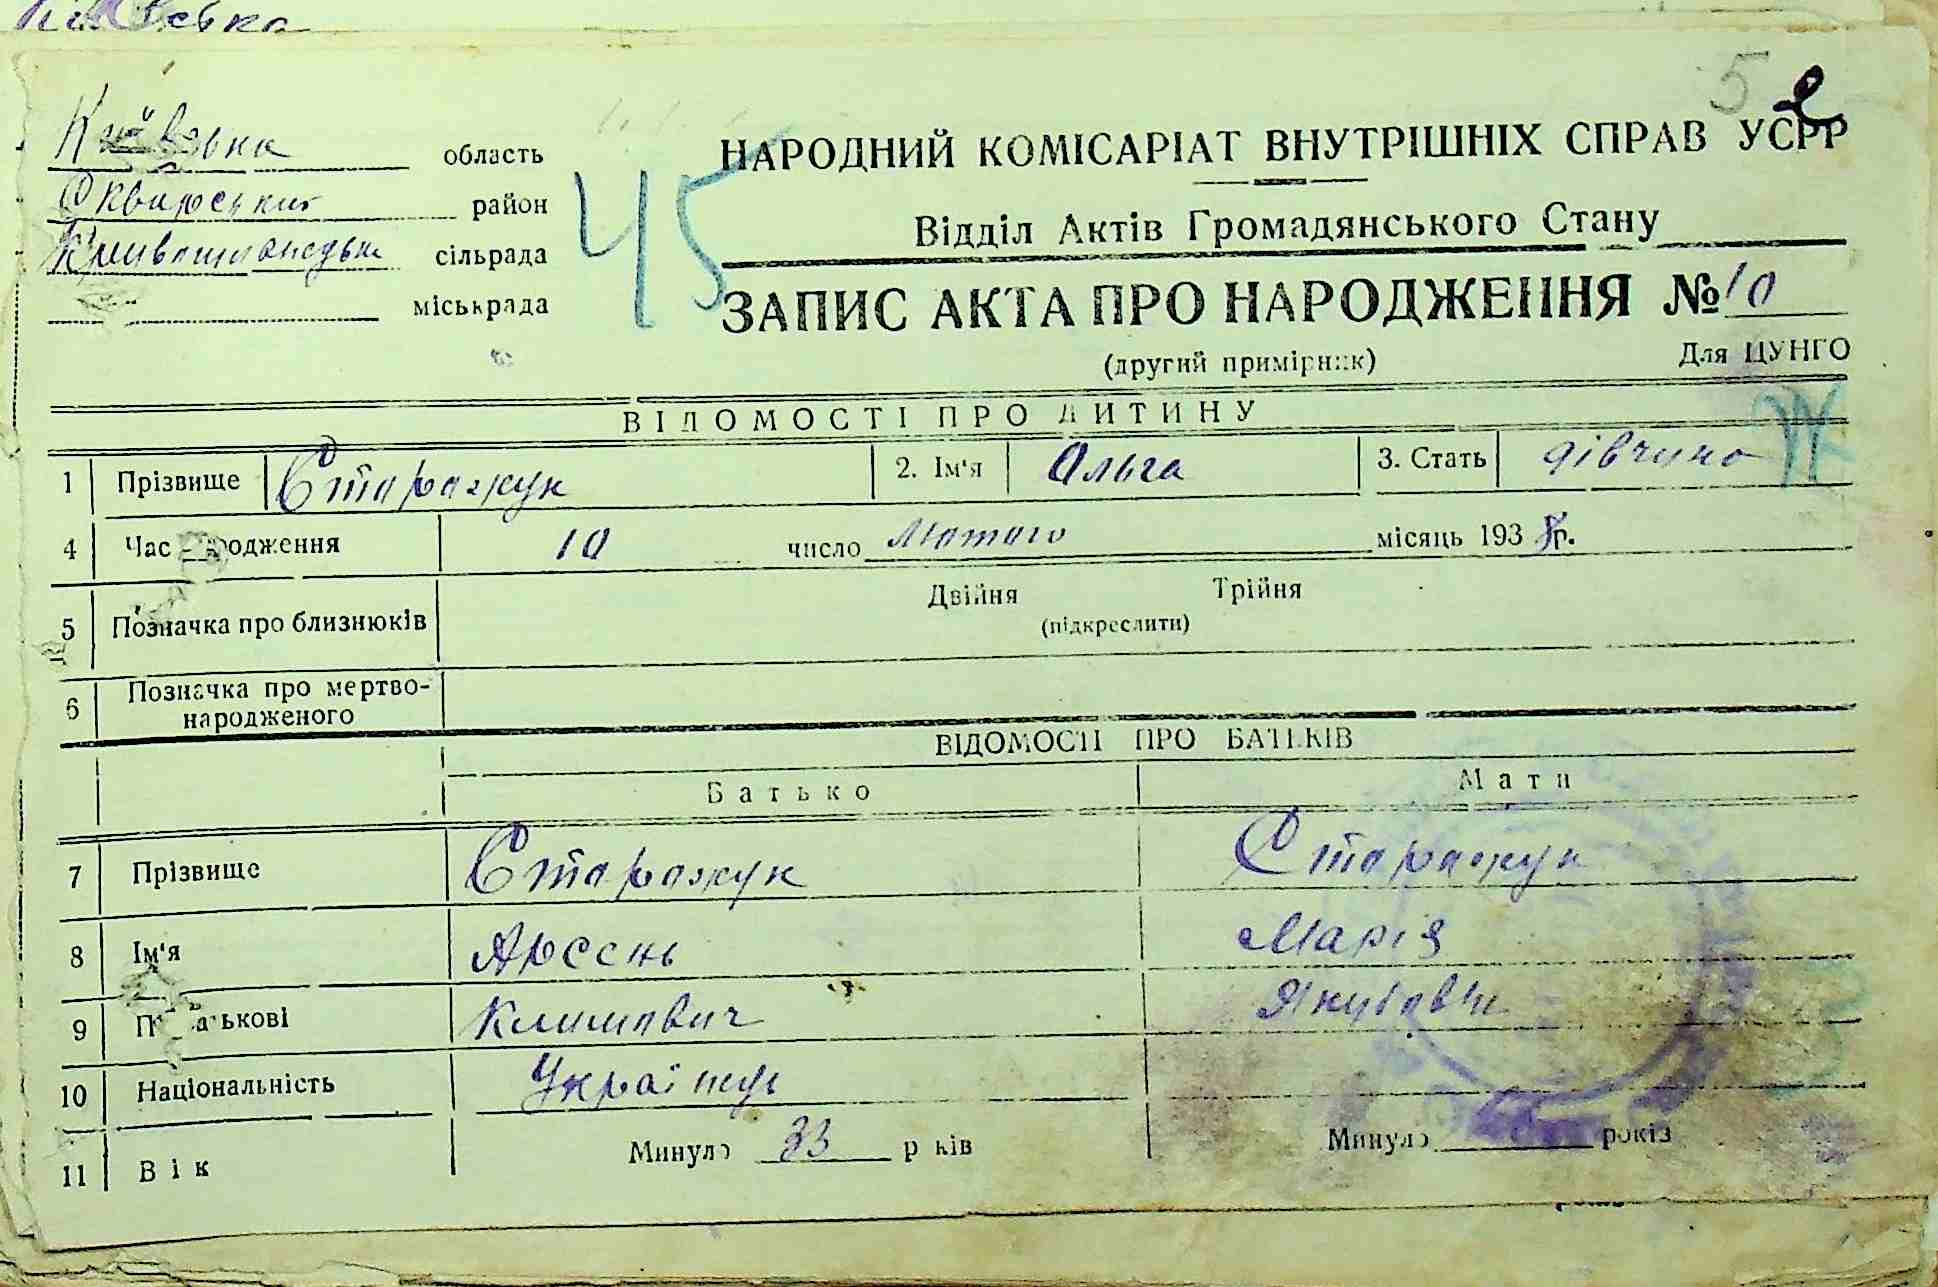 5 2
Київська область
Сквирський район
сільрада
міськрада
45
НАРОДНИЙ КОМІСАРІАТ ВНУТРІШНІХ СПРАВ УСРР
Відділ Актів Громадянського Стану
ЗАПИС АКТА ПРО НАРОДЖЕННЯ № 10
(другий примірник) Для ЦУНГО
ВІДОМОСТІ ПРО ДИТИНУ
1 Прізвище Старажук 2. Ім'я Ольга 3. Стать дівчина
4 Час народження 10 число Лютого місяць 1938 р.
5 Позначка про близнюків Двійня Трійня
(підкреслити)
6 Позначка про мертво-
народженого
ВІДОМОСТІ ПРО БАТЬКІВ
Батько Мати
7 Прізвище Старажук Старажук
8 Ім'я Арсень Марія
9 По батькові Климович
10 Національність Українці
11 Вік Минуло 33 років Минуло років